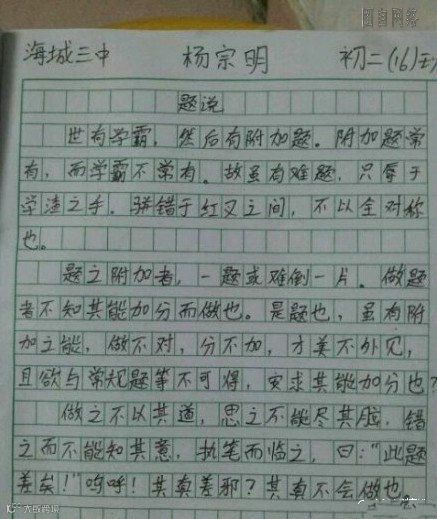 图自网络
海城三中 杨宗明 初二(16)班
题说
世有学霸，然后有附加题。附加题常
有，而学霸不常有。故虽有难题，只辱于
学渣之手，骈错于红叉之间，不以全对称
也。
题之附加者，一题或难倒一片。做题
者不知其能加分而做也。是题也，虽有附
加之能，做不对，分不加，才美不外见，
且欲与常规题等不可得，安求其能加分也？
做之不以其道，思之不能尽其脑，错
之而不能知其意，执笔而临之，曰："此题
差矣！"呜呼！其真差邪？其真不会做也
大数跨境